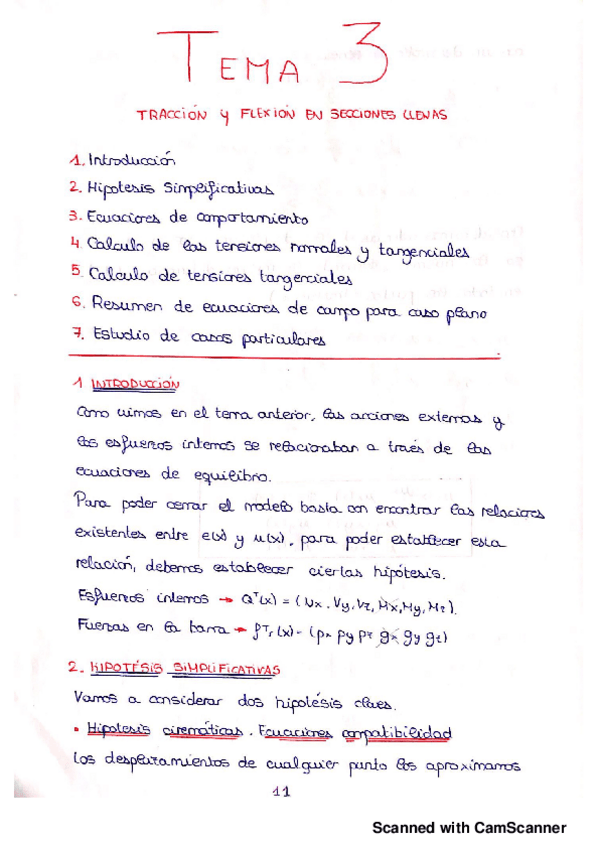 TEMA 3
TRACCIÓN y FLEXIÓN EN SECCIONES LLENAS
1. Introducción
2. Hipotesis Simplificativas
3. Ecuaciones de comportamiento
4. Calculo de las tensiones normales y tangenciales
5. Calculo de tensiones tangenciales
6. Resumen de ecuaciones de campo para caso plano
7. Estudio de casos particulares
1 INTRODUCCIÓN
Como vimos en el tema anterior, las acciones externas y
los esfuerzos internos se relacionaban a través de las
ecuaciones de equilibro.
Para poder cerrar el modelo basta con encontrar las relaciones
existentes entre e(x) y u(x), para poder establecer esta
relación, debemos establecer ciertas hipótesis.
Esfuerzos internos → Qᵀ(x) = (Nx, Vy, Vz, Mx, My, Mz).
Fuerzas en la barra → fᵀ(x) = (px py pz gx gy gz)
2. HIPOTÉSIS SIMPLIFICATIVAS
Vamos a considerar dos hipotésis claves.
• Hipotesis cinemáticas. Ecuaciones compatibilidad
Los desplazamientos de cualquier punto los aproximamos
11
Scanned with CamScanner